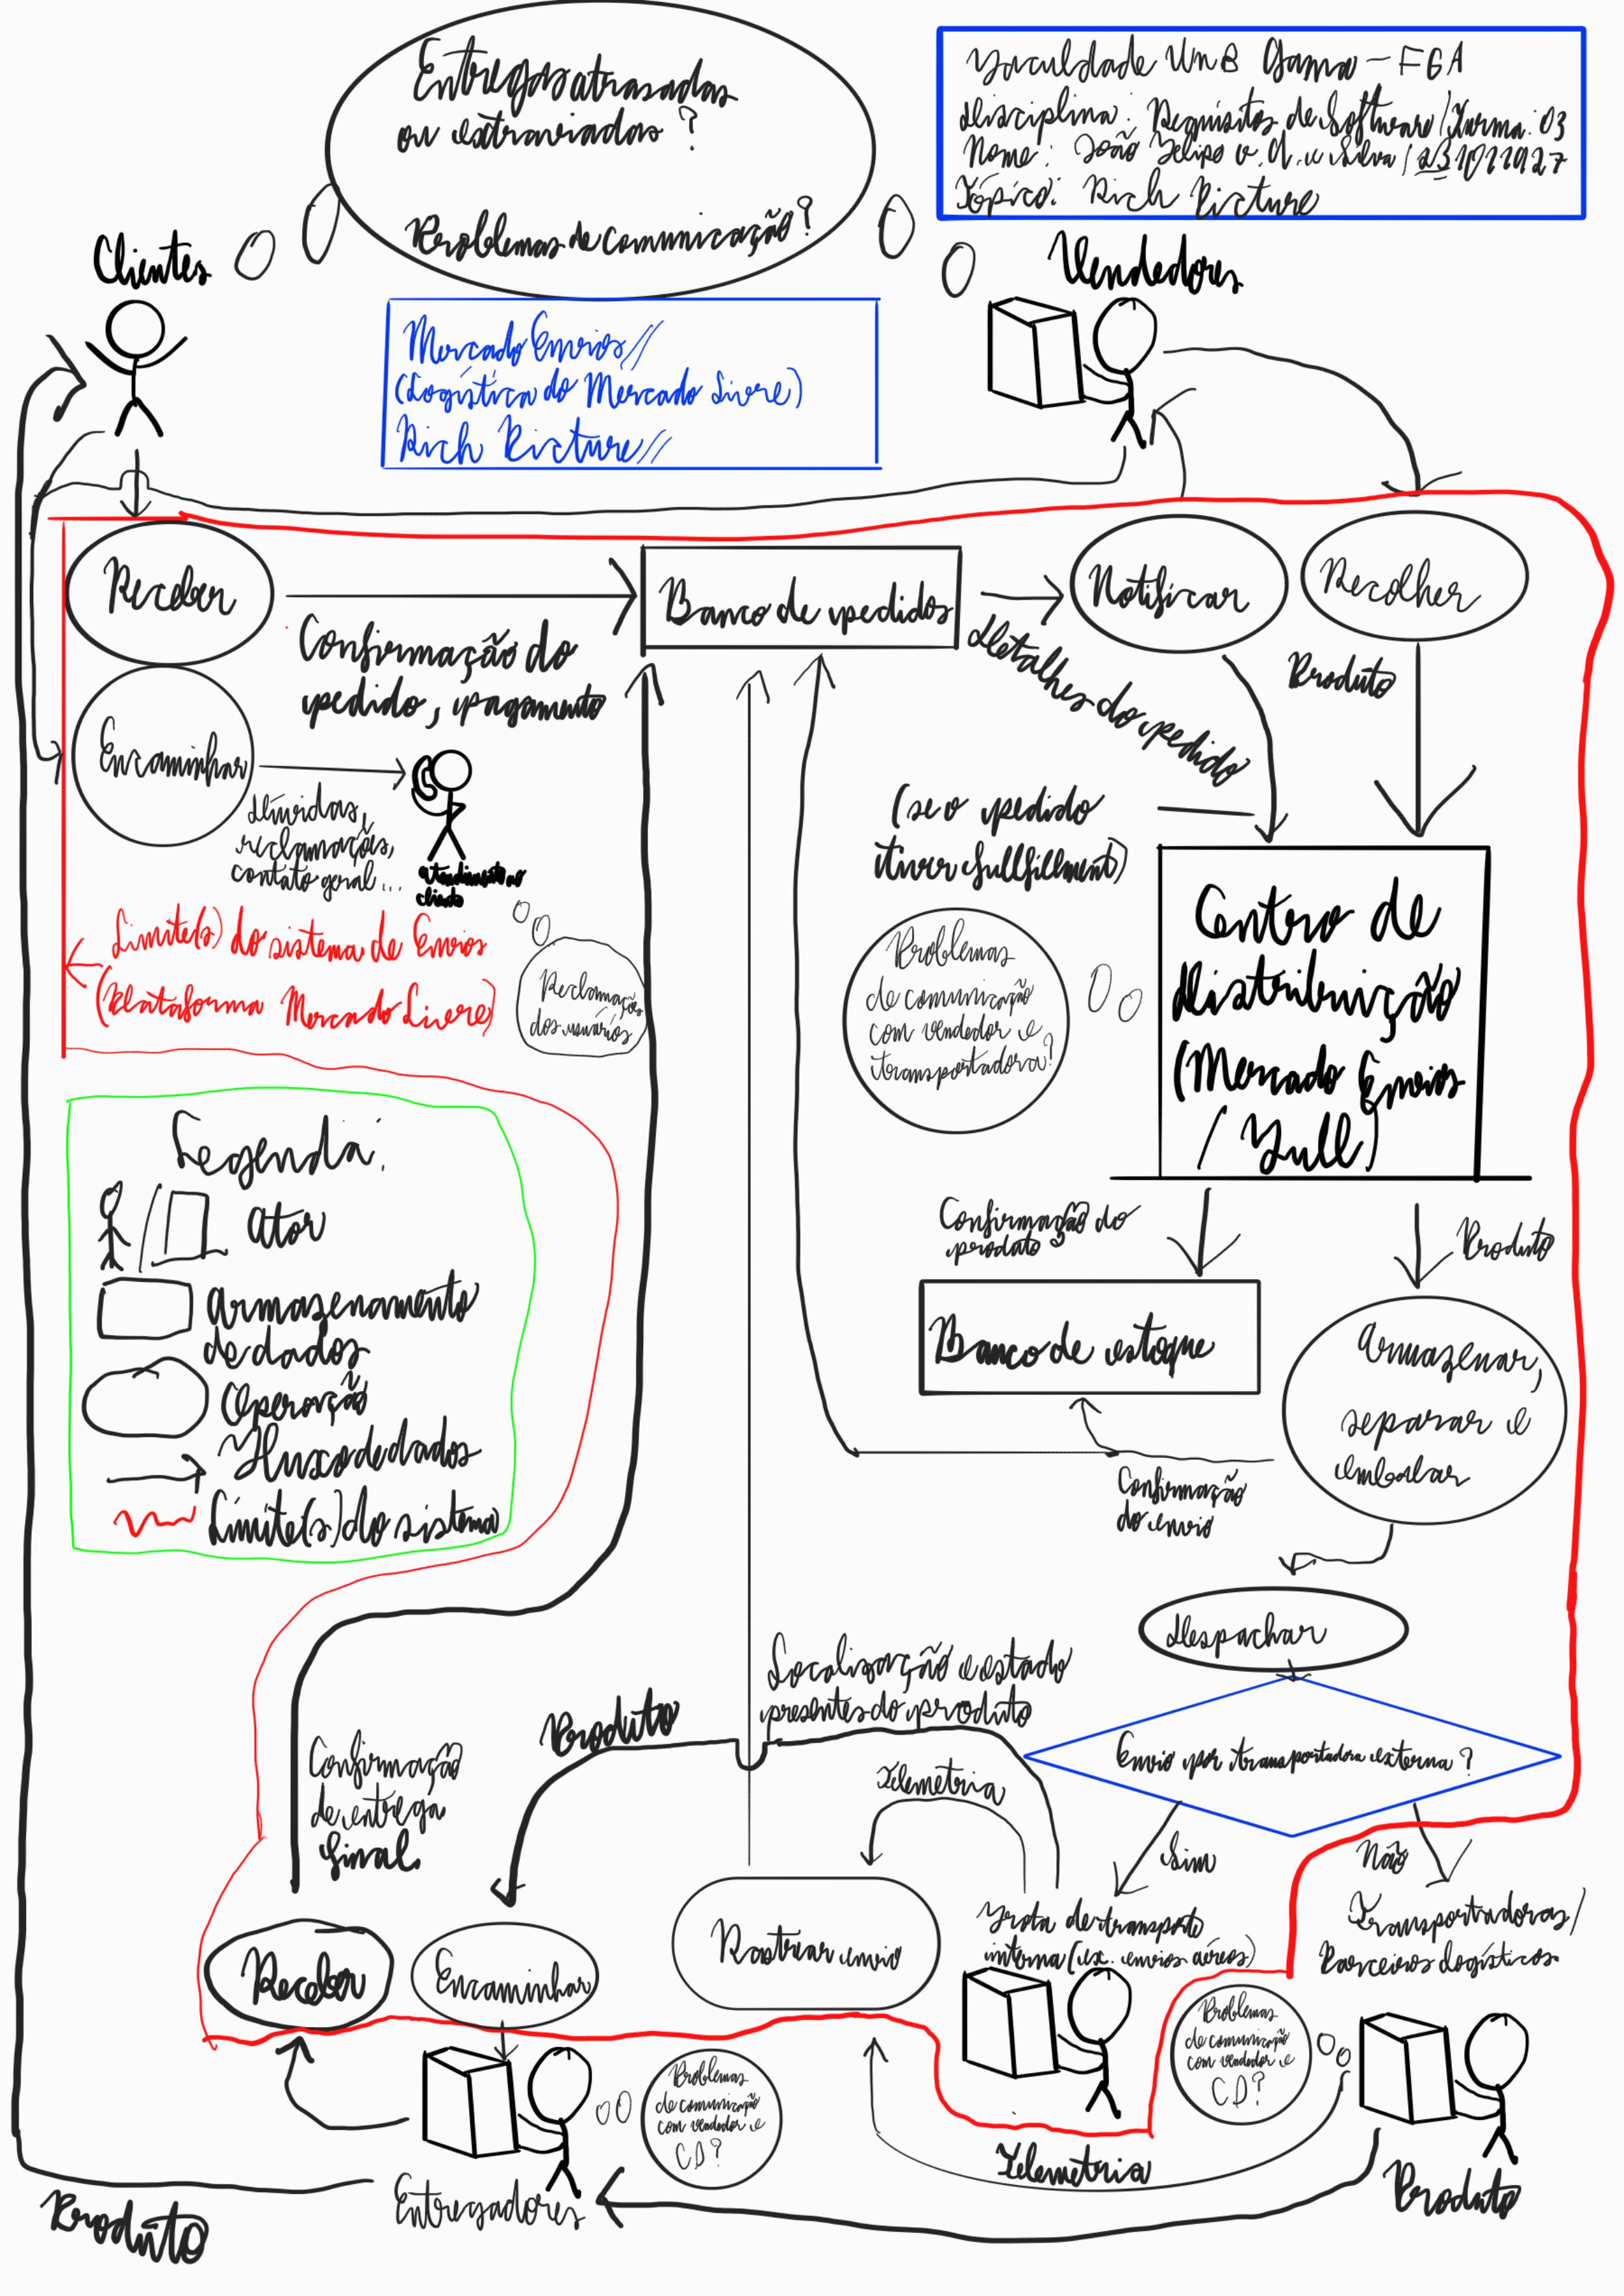 Entregas atrasadas
ou extraviadas?
Problemas de comunicação?
Faculdade UnB Gama - FGA
Disciplina: Requisitos de Software / Turma: 03
Nome: João Felipe e Silva
Tópico: Rich Picture
Clientes
Vendedores
Mercado Envios//
(Logística do Mercado Livre)
Rich Picture//
Receber
Confirmação do
pedido, pagamento
Banco de pedidos
Notificar
Recolher
Detalhes do pedido
Produto
Encaminhar
Dúvidas,
reclamações,
contato geral...
atendimento ao
cliente
Reclamações
dos usuários
Limite(s) do sistema de Envios
(Plataforma Mercado Livre)
(se o pedido
tiver fullfillment)
Problemas
de comunicação
com vendedor e
transportadora?
Centro de
Distribuição
(Mercado Envios
/ Full)
Legenda:
Ator
Armazenamento
de dados
Operação
Fluxo de dados
Limite(s) do sistema
Confirmação do
produto
Produto
Banco de estoque
Armazenar,
separar e
embalar
Confirmação
do envio
Despachar
Envio por transportadora externa?
Sim
Não
Localização e estado
presentes do produto
Produto
Telemetria
Confirmação
de entrega
final
Receber
Encaminhar
Rastrear envio
Frota de transporte
interna (ex. envios aéreos)
Transportadoras/
Parceiros logísticos
Problemas
de comunicação
com vendedor e
CD?
Problemas
de comunicação
com vendedor e
CD?
Telemetria
Entregadores
Produto
Produto